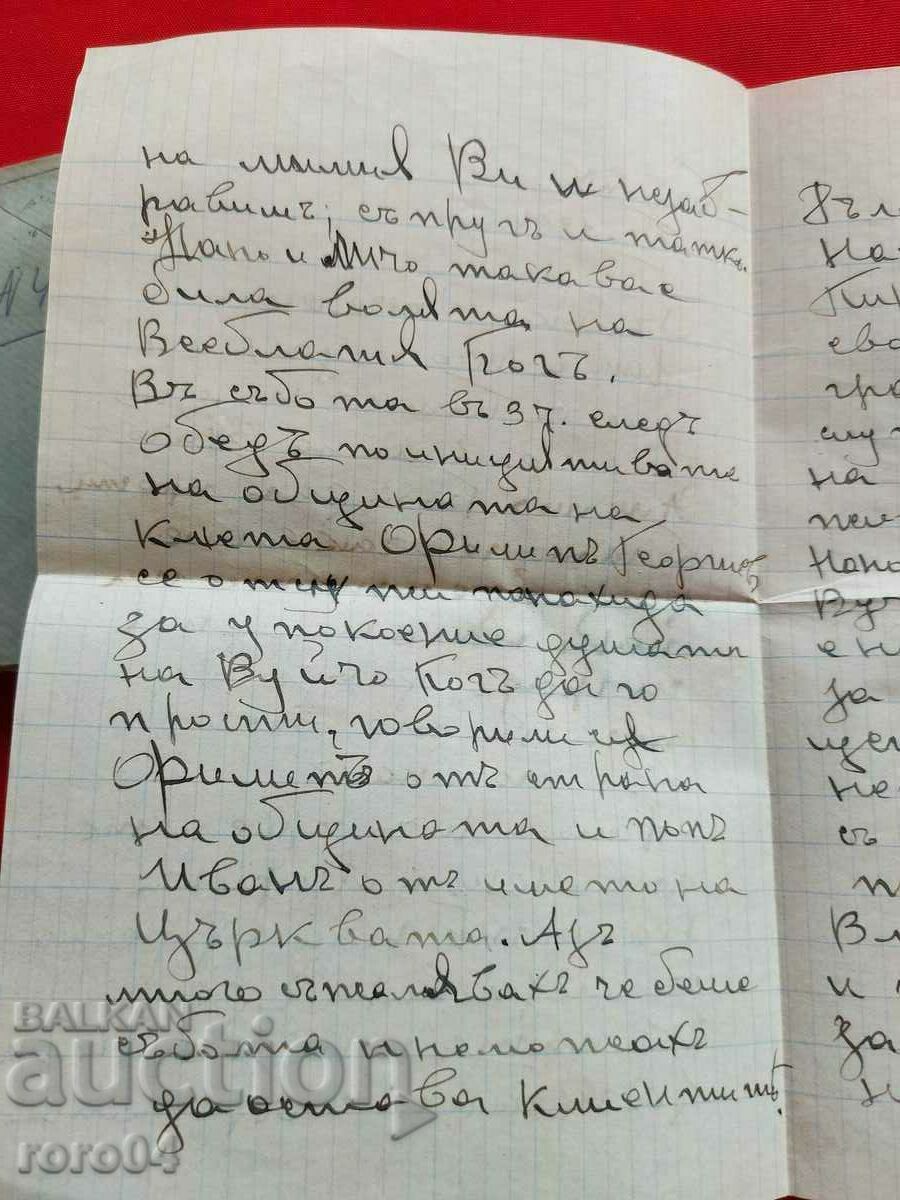 на милия Ви и незаб-
равимъ; съпругъ и татко.
Нано и Мичо такава е
била волята на
Всеблагия Богъ.
Въ събота въ 3 ч. следъ
обедъ по инициятивата
на общината на
кмета Филипъ Георгиев
се отслужи панахида
за упокоение душата
на Вуйчо Богъ да го
прости, говорили
Филипъ отъ страна
на общината и попъ
Иванъ отъ името на
Църквата. Азъ
много съжалявахъ че беше
събота и неможахъ
да оставя клиентитѣ
Нано
евo
гра
слу
на
за
не
съ
п
Вл
и
За
н
BALKAN
auction
roro04